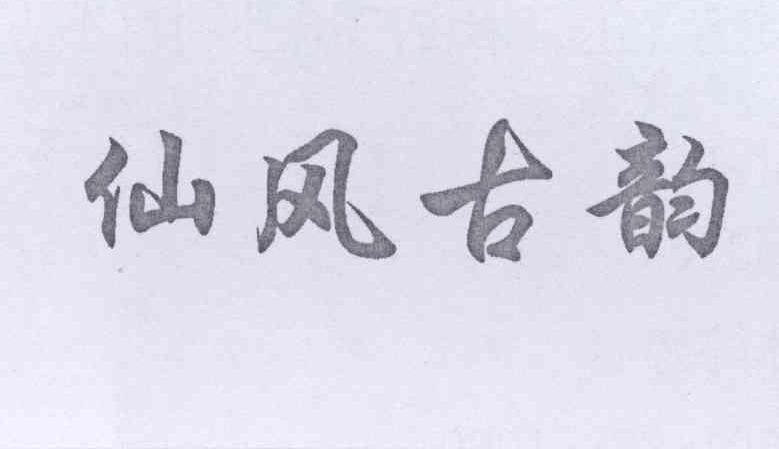 仙风古韵